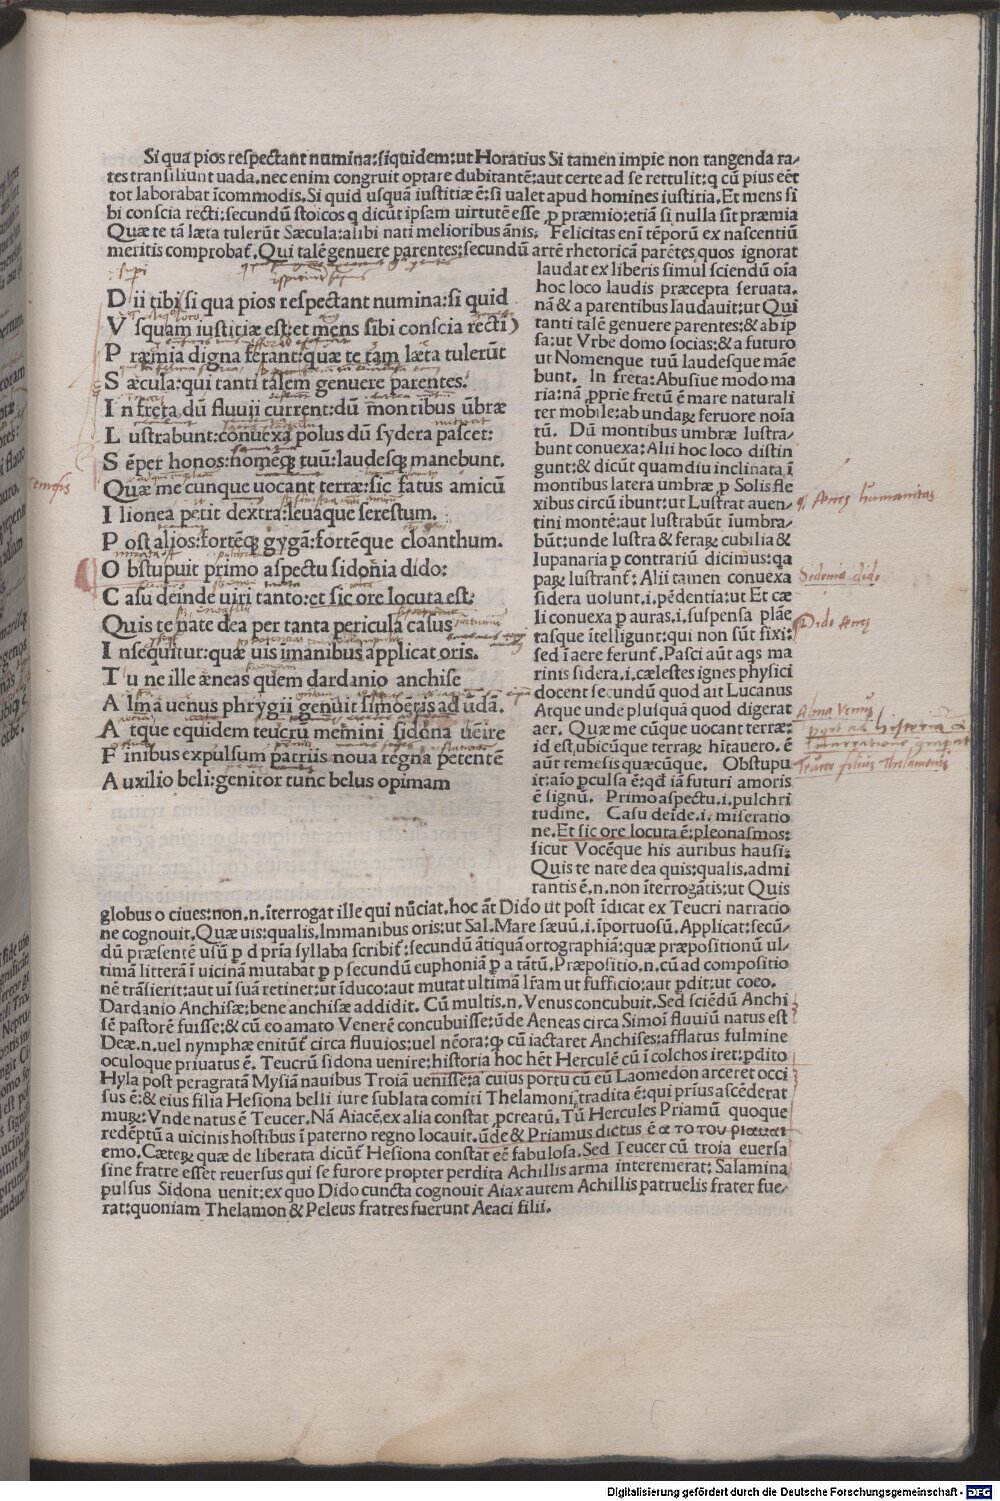 Si qua pios respectant numina:siquidem:ut Horatius Si tamen impie non tangenda ra-
tes transiliunt uada.nec enim congruit optare dubitantē:aut certe ad se rettulit:q cū pius eēt
tot laborabat īcommodis.Si quid usquā iustitiæ ē:si ualet apud homines iustitia.Et mens si
bi conscia recti:secundū stoicos q dicūt ipsam uirtutē esse ꝓ præmio:etiā si nulla sīt præmia
Quæ te tā læta tulerūt Sæcula:alibi nati melioribus ānis. Felicitas enī tēporū ex nascentiū
meritis comprobat̄.Qui talē genuere parentes:secundū artē rhetoricā parētes quos ignorat
D ii tibi si qua pios respectant numina:si quid
V squam iustitiæ est:et mens sibi conscia recti)
P ræmia digna ferant:quæ te tam læta tulerūt
S æcula:qui tanti talem genuere parentes.
I n freta dū fluuii current:dū montibus ūbræ
L ustrabunt:conuexa polus dū sydera pascet:
S ēper honos:nomēqꝫ tuū:laudesqꝫ manebunt.
Quæ me cunque uocant terræ:sic fatus amicū
I lionea petit dextra:leuaque serestum.
P ost alios:fortēqꝫ gygā:fortēque cloanthum.
O bstupuit primo aspectu sidonia dido:
C asu deinde uiri tanto:et sic ore locuta est.
Quis te nate dea per tanta pericula casus
I nsequitur:quæ uis imanibus applicat oris.
T u ne ille æneas quem dardanio anchise
A lma uenus phrygii genuit simoetis ad udā.
A tque equidem teucrū memini sidona ueire
F inibus expulsum patriis noua regna petentē
A uxilio beli:genitor tunc belus opimam
laudat ex liberis simul sciendū oīa
hoc loco laudis præcepta seruata.
nā & a parentibus laudauit:ut Qui
tanti talē genuere parentes:& ab ip
sa:ut Vrbe domo socias:& a futuro
ut Nomenque tuū laudesque māe
bunt. In freta:Abusiue modo ma
ria:nā ꝓprie fretū ē mare naturali
ter mobile:ab undaꝝ feruore noīa
tū. Dū montibus umbræ lustra-
bunt conuexa:Alii hoc loco distin
gunt:& dicūt quamdiu inclinata ī
montibus latera umbræ ꝓ Solis fle
xibus circū ibunt:ut Lustrat auen-
tini montē:aut lustrabūt īumbra-
būt:unde lustra & feraꝝ cubilia &
lupanaria ꝑ contrariū dicimus:qa
paꝝ lustrant̄: Alii tamen conuexa
sidera uolunt.i.pēdentia:ut Et cæ
li conuexa ꝑ auras.i.suspensa plāe
tasque ītelligunt:qui non sūt fixi:
sed ī aere ferunt̄.Pasci aūt aqs ma
rinis sidera.i.cælestes ignes physici
docent secundū quod ait Lucanus
Atque unde plusquā quod digerat
aer. Quæ me cūque uocant terræ:
id est ubicūque terraꝝ hītauero. ē
aūt temesis quæcūque. Obstupu
it:aīo ꝑculsa ē:qd̄ iā futuri amoris
ē signū. Primo aspectu.i.pulchri
tudine. Casu deīde.i. miseratio
ne.Et sic ore locuta ē:pleonasmos:
sicut Vocēque his auribus hausi:
Quis te nate dea quis:qualis.admi
rantis ē.n.non īterrogātis:ut Quis
globus o ciues:non.n.īterrogat ille qui nūciat.hoc āt Dido ut post īdicat ex Teucri narratio
ne cognouit.Quæ uis:qualis.Immanibus oris:ut Sal.Mare sæuū.i.īportuosū.Applicat:secū-
dū præsentē usū ꝑ d pria syllaba scribit̄:secundū ātiquā ortographiā:quæ præpositionū ul-
timā litterā ī uicinā mutabat ꝑ p secundū euphoniā ꝑ a tātū.Præpositio.n.cū ad compositio
nē trāsierit:aut uī suā retinet:ut īduco:aut mutat ultimā lr̄am ut sufficio:aut ꝑdit:ut coeo.
Dardanio Anchisæ:bene anchisæ addidit. Cū multis.n.Venus concubuit.Sed sciēdū Anchi
sē pastorē fuisse:& cū eo amato Venerē concubuisse:ūde Aeneas circa Simoī fluuiū natus est
Deæ.n.uel nymphæ enitūt̄ circa fluuios:uel nēora:qꝫ cū iactaret Anchises:afflatus fulmine
oculoque priuatus ē. Teucrū sidona uenire:historia hoc hēt Herculē cū ī colchos iret:ꝑdito
Hyla post peragratā Mysiā nauibus Troiā uenisse:a cuius portu cū eū Laomedon arceret occi
sus ē:& eius filia Hesiona belli iure sublata comiti Thelamoni tradita ē:qui prius ascēderat
muꝝ:Vnde natus ē Teucer.Nā Aiacē ex alia constat ꝓcreatū.Tū Hercules Priamū quoque
redēptū a uicinis hostibus ī paterno regno locauit.ūde & Priamus dictus ē α το του ριαμαι
emo.Cæteꝝ quæ de liberata dicūt̄ Hesiona constat eē fabulosa.Sed Teucer cū troia euersa
sine fratre esset reuersus qui se furore propter perdita Achillis arma interemerat: Salamina
pulsus Sidona uenit:ex quo Dido cuncta cognouit Aiax autem Achillis patruelis frater fue-
rat:quoniam Thelamon & Peleus fratres fuerunt Aeaci filii.
temesis
Aneę humanitas
Sidonia dido
Dido Aneę
Alma Venus
Teucer filius Thelamonis
Digitalisierung gefördert durch die Deutsche Forschungsgemeinschaft - DFG